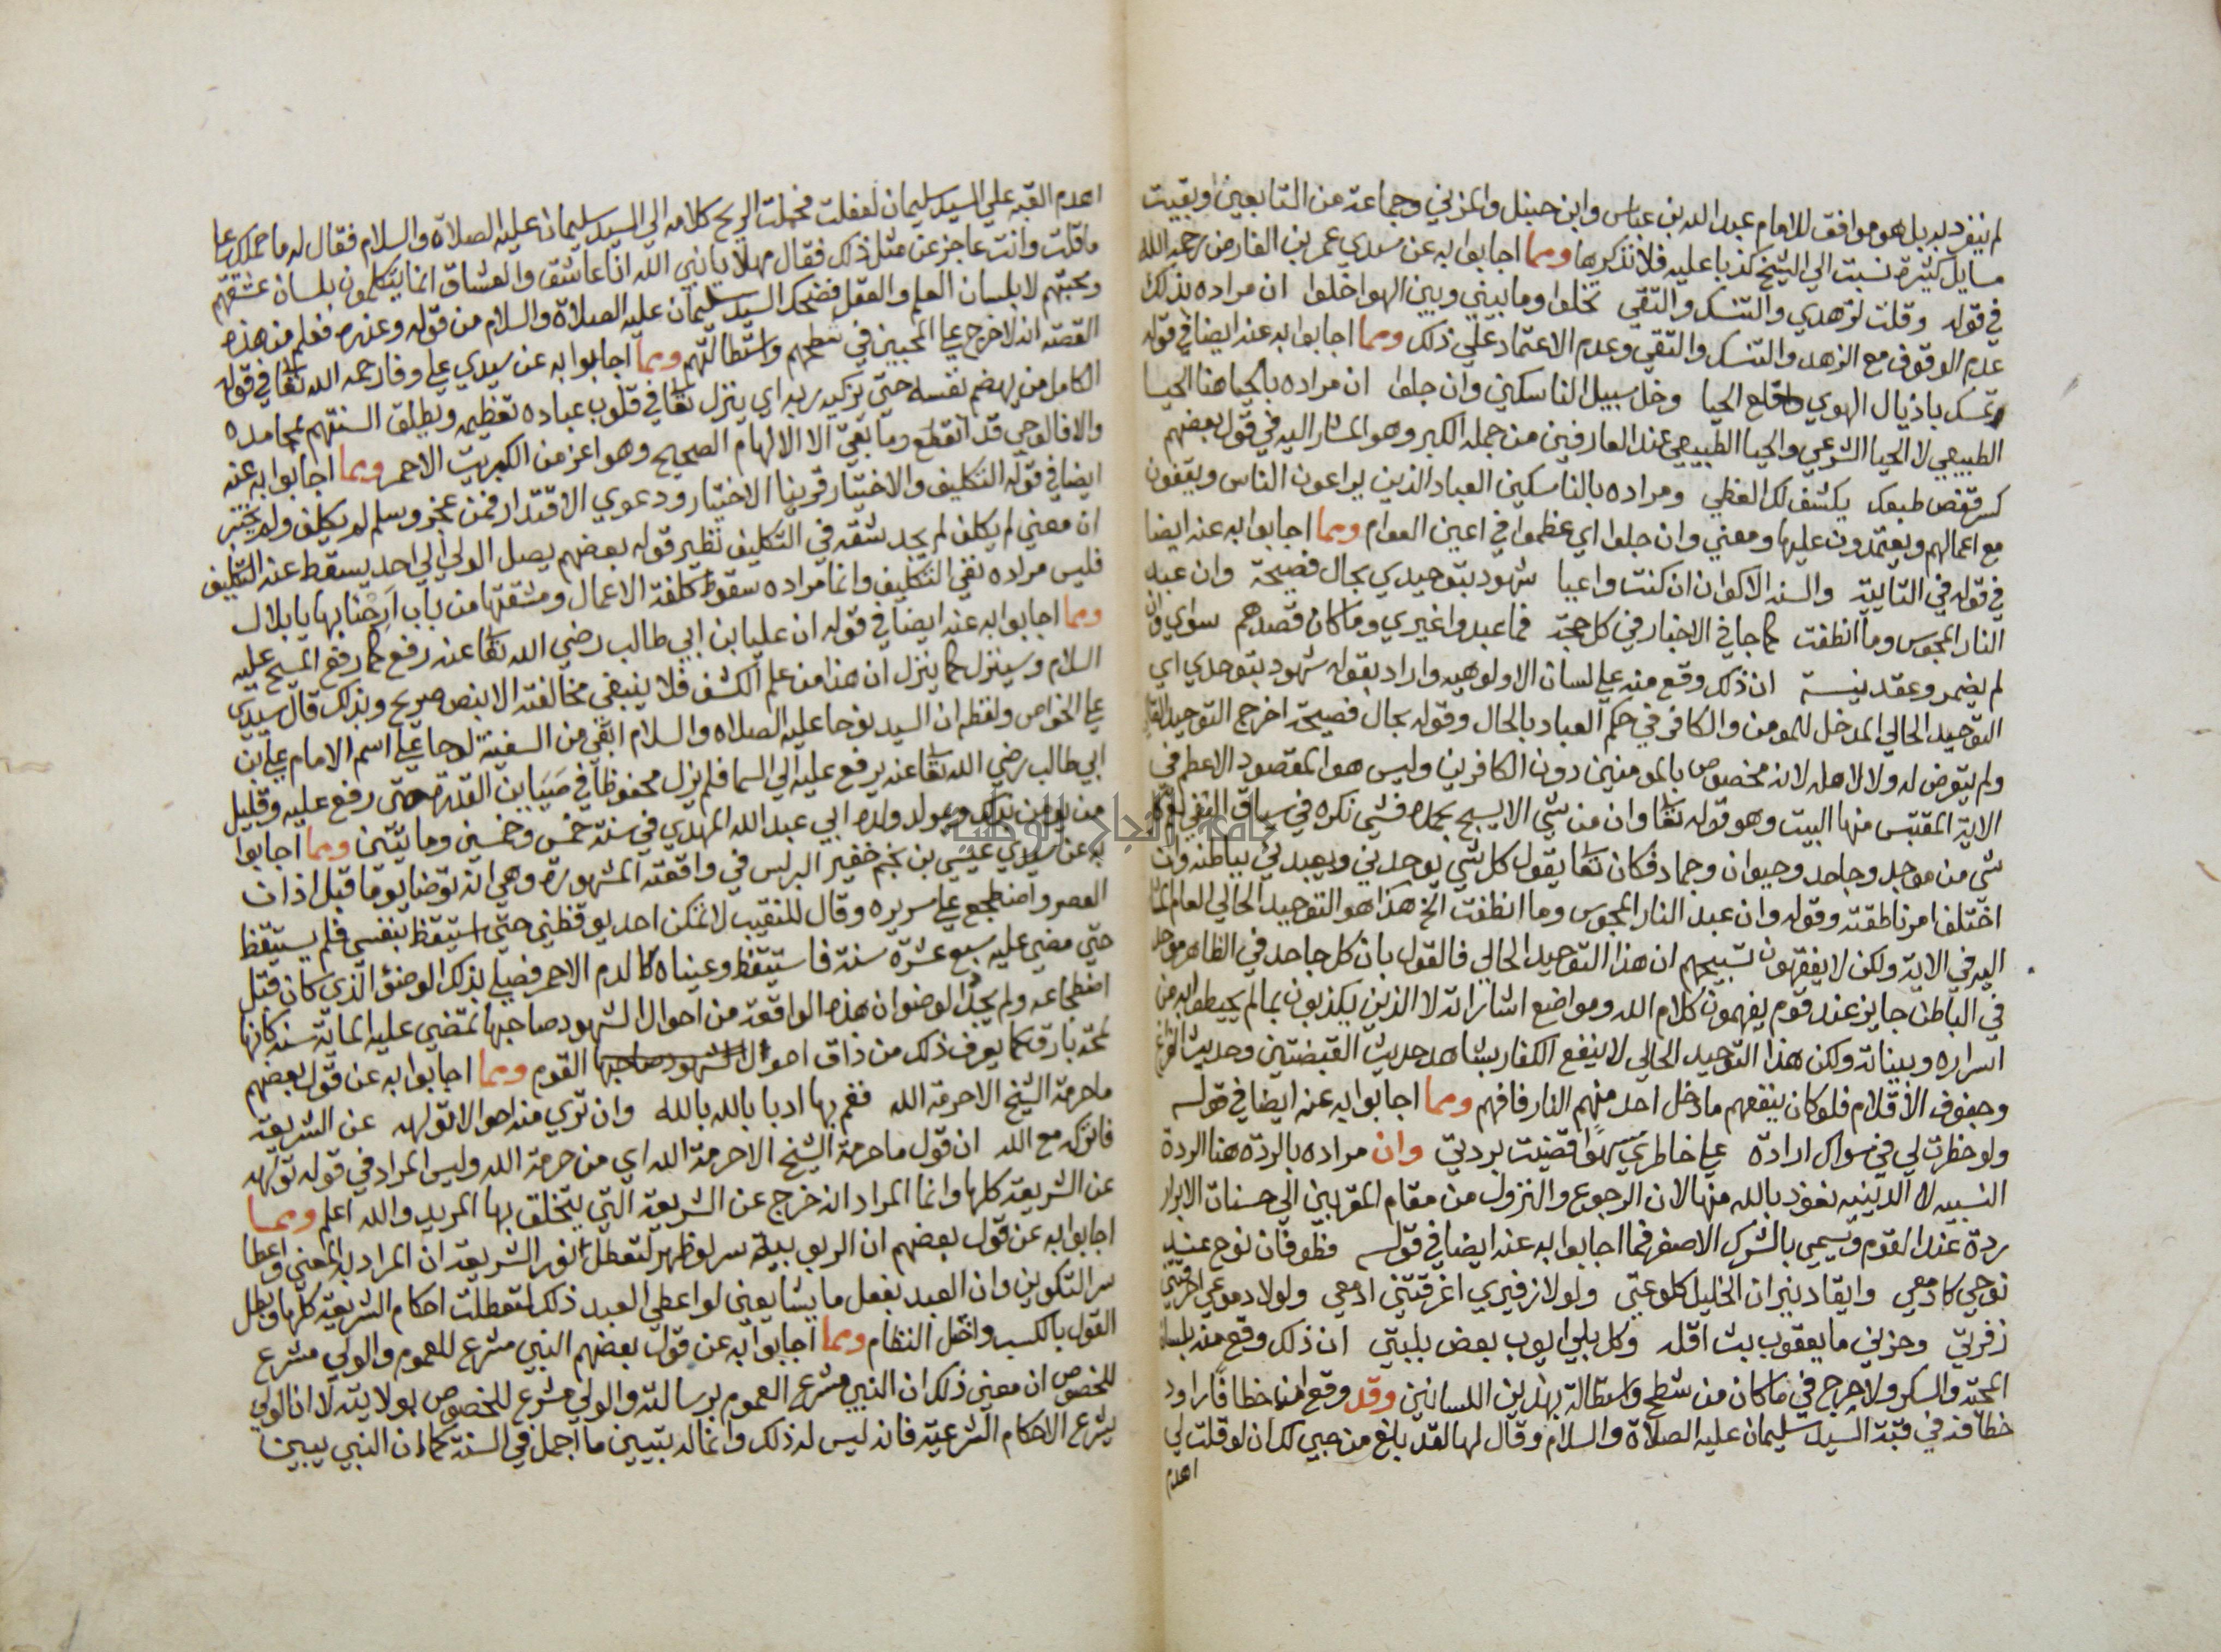 لم ينفرد به بل هو موافق للامام عبد الله بن عباس وابن حنبل والمزني وجماعة من التابعين وبقيت
مسايل كثيرة نسبت الي الشيخ كذبا عليه فلا نذكرها ومما اجابوا به عن سيدي عمر بن الفارض رحمه الله
في قوله وقلت لزهدي والتنسك والتقي تخلوا وما بيني وبين الهوا خلوا ان مراده بذلك
عدم الوقوف مع الزهد والتنسك والتقي وعدم الاعتماد علي ذلك ومما اجابوا به عنه ايضا في قوله
وتمسك باذيال الهوي واخلع الحيا وخل سبيل الناسكين وان جلوا ان مراده بالحيا هنا الحيا
الطبيعي لا الحيا الشرعي والحيا الطبيعي عند العارفين من جملة الكبر وهو المشار اليه في قول بعضهم
كسر قفص طبعك يكشف لك الغطي ومراده بالناسكين العباد الذين يراعون الناس ويقفون
مع اعمالهم ويعتمدون عليها ومعني وان جلوا اي عظموا في اعين العوام ومما اجابوا به عنه ايضا
في قوله في التايية والسنه الاكوان ان كنت واعيا شهود بتوحيدي بحال فصيحة وان عبد
النار المجوس وما انطفت كما جا في الاخبار في كل حجة فما عبدوا غيري وما كان قصدهم سواي وان
لم يضمروا عقد نيسة ان ذلك وقع منه علي لسان الاولوهيه واراد بقوله شهود بتوحدي اي
التوحيد الحالي المدخل للمومن والكافر في حكم العباد بالحال وقوله بحال فصيحة اخرج التوحيد القالي
ولم يتعرض له ولا لاهله لانه مخصوص بالمومنين دون الكافرين وليس هو المقصود الاعظم في
الاية المقتبس منها البيت وهو قوله تعا وان من شي الا يسبح بحمده فشي نكره في سياق النفي
شي من موجد وجاحد وحيوان وجماد فكان تعا يقول كل شي يوحدني ويعبدني بباطنه وان
اختلف امر ناطقته وقوله وان عبد النار المجوس وما انطفت الخ هذا هو التوحيد الحالي العام المشار
اليه في الاية ولكن لا يفقهون تسبيحهم ان هذا التوحيد الحالي فالقول بان كل جاحد في الظاهر موحد
في الباطن جايز عند قوم يفهمون كلام الله ومواضع اشاراته لا الذين يكذبون بما لم يحيطوا به من
اسراره وبيناته ولكن هذا التوحيد الحالي لا ينفع الكفار بشاهد حديث القبضتين وحديث الفراغ
وجفوف الاقلام فلو كان ينفعهم ما دخل احد منهم النار فافهم ومما اجابوا به عنه ايضا في قوله
ولو خطرت لي في سواك ارادة علي خاطري سهوا قضيت بردتي وان مراده بالردة هنا الردة
النسبيه لا الدينيه نعوذ بالله منها لان الرجوع والنزول من مقام المقربين الي حسنات الابرار
ردة عند القوم ويسمي بالشرك الاصغر فما اجابوا به عنه ايضا في قوله فطوفان نوح عند
نوحي كادمعي وايقاد نيران الخليل كلوعتي ولولا زفيري اغرقتني ادمعي ولولا دموعي احرقتني
زفرتي وحزني ما يعقوب بث اقله وكل بلي ايوب بعض بليتي ان ذلك وقع منه بلسان
المحبة والسكر ولا حرج في ما كان من شطح واستطالة بهذين اللسانين وقد وقع ان خطافا راود
خطافة في قبة السيد سليمان عليه الصلاة والسلام وقال لها لقد بلغ من حبي لك ان لو قلت لي
اهدم
اهدم القبه علي السيد سليمان لفعلت فحملت الريح كلامه الي السيد سليمان عليه الصلاة والسلام فقال له ما حملك علي
ما قلت وانت عاجز عن مثل ذلك فقال مهلا يا نبي الله انا عاشق والعشاق انما يتكلمون بلسان عشقهم
ومحبتهم لا بلسان العلم والعقل فضحك السيد سليمان عليه الصلاة والسلام من قوله وعذره فعلم من هذه
القصة انه لا حرج علي المحبين في شطحهم واستطالتهم ومما اجابوا به عن سيدي علي وفا رحمه الله تعا في قوله
الكامل من يهضم نفسه حتي يزكيه ربه اي ينزل تعا في قلوب عباده تعظيمه ويطلق السنتهم بمحامده
والا فالوحي قد انقطع وما بقي الا الالهام الصحيح وهو اعز من الكبريت الاحمر ومما اجابوا به عنه
ايضا في قوله التكليف والاختيار قرينا الاختيار ودعوي الاقتدار فمن عجز وسلم لم يكلف ولم يختبر
ان معني لم يكلف لم يجد مشقه في التكليف نظير قول بعضهم يصل الولي الي احد يسقط عنه التكليف
فليس مراده نفي التكليف وانما مراده سقوط كلفة الاعمال ومشقتها من باب ارحنا بها يا بلال
ومما اجابوا به عنه ايضا في قوله ان عليا بن ابي طالب رضي الله تعا عنه رفع كما رفع المسيح عليه
السلام وسينزل كما ينزل ان هذا من علم الكشف فلا ينبغي مخالفته الا بنص صريح وبذلك قال سيدي
علي الخواص ولفظه ان السيد نوحا عليه الصلاه والسلام ابقي من السفينة لوحا علي اسم الامام علي بن
ابي طالب رضي الله تعا عنه يرفع عليه الي السما فلم يزل محفوظا في صيابن القدرة حتي رفع عليه وقليل
من يومن بذلك ومولد ولده ابي عبد الله المهدي في سنة خمس وخمسين وما يتين ومما اجابوا
به عن سيدي عيسي بن نجم خفير البرلس في واقعته المشهورة وهي انه توضا يوما قبل اذان
العصر واضطجع علي سريره وقال للنقيب لا تمكن احد يوقظني حتي استيقظ بنفسي فلم يستيقظ
حتي مضي عليه سبع عشرة سنة فاستيقظ وعيناه كالدم الاحمر فصلي بذلك الوضؤ الذي كان قبل
اضطجاعه ولم يجدد الوضو ان هذه الواقعة من احوال الشهود صاحبها تمضي عليه الماية سنه كانها
لمحة بارق كما يعرف ذلك من ذاق احوال الشهود صاحبها القوم ومما اجابوا به عن قول بعضهم
ما حرمة الشيخ الا حرمة الله فقم بها ادبا بالله بالله وان تري منه احوالا توله عن الشريعة
فاتركه مع الله ان قول ما حرمة الشيخ الا حرمة الله اي من حرمة الله وليس المراد في قوله توله
عن الشريعة كلها وانما المراد انه خرج عن الشريعة التي يتخلق بها المريد والله اعلم ومما
اجابوا به عن قول بعضهم ان الربوبية سر لو ظهر لتعطل نور الشريعة ان المراد به المعني واعطا
سر التكوين وان العبد يفعل ما يشا يعني لو اعطي العبد ذلك لتعطلت احكام الشريعة كلها وبطل
القول بالكسب واختل النظام ومما اجابوا به عن قول بعضهم النبي مشرع للعموم والولي مشرع
للخصوص ان معني ذلك ان النبي مشرع العموم برسالته والولي مشرع للخصوص بولايته لا ان الولي
يشرع الاحكام الشرعية فانه ليس له ذلك وانما له تبيين ما اجمل في السنة كما ان النبي يبين
جامعة النجاح الوطنية